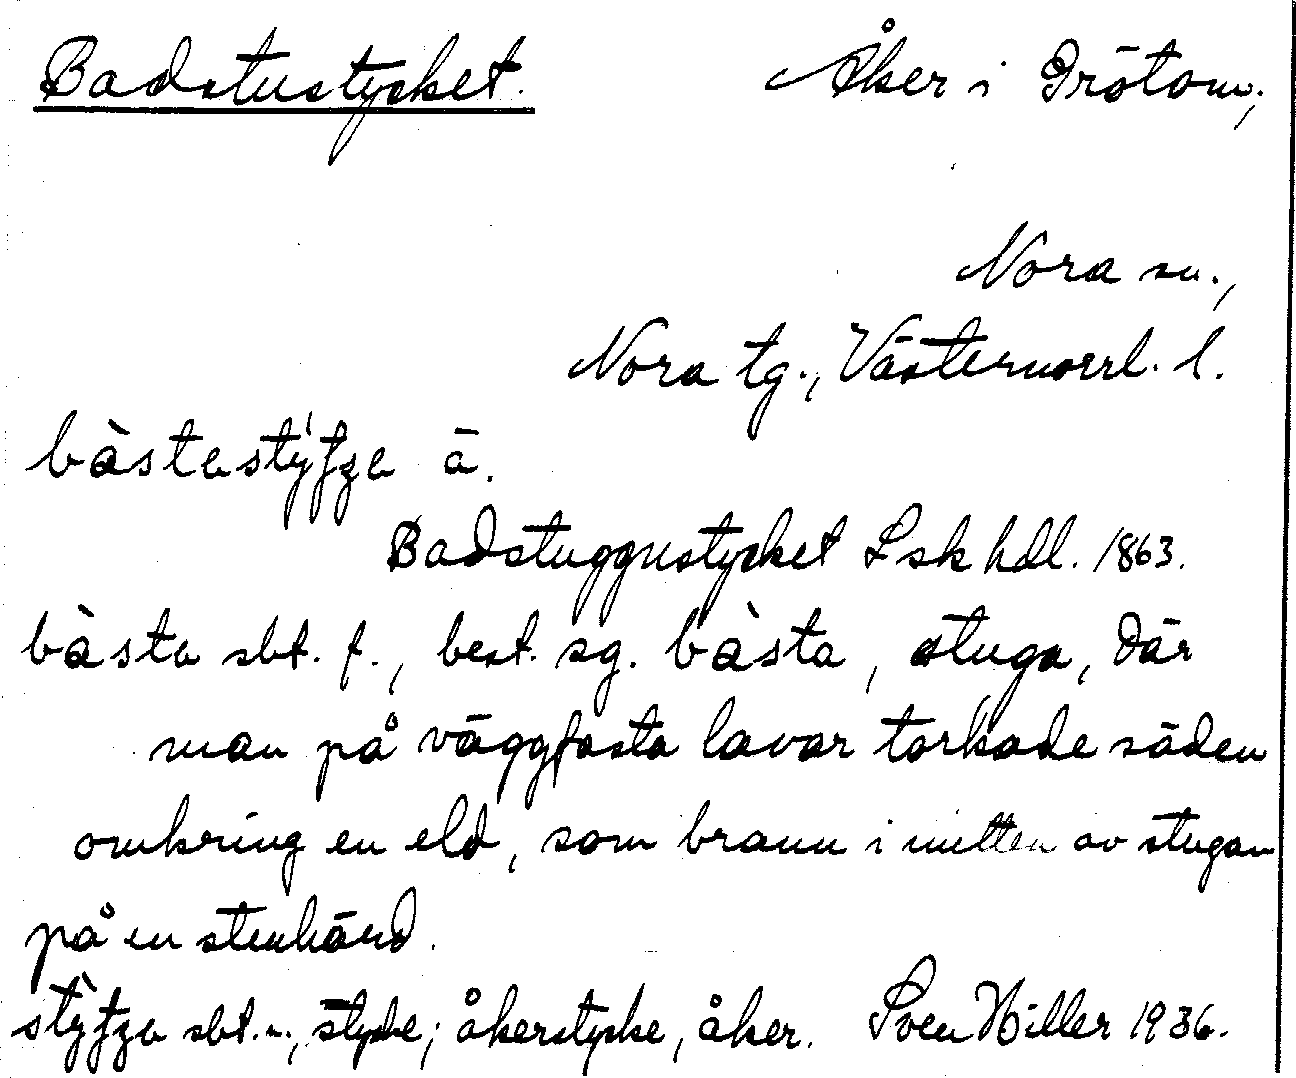 Badstustycket. Åker i Grötom,
Nora sn.,
Nora tg., Västernorrl. l.
bàstastýtʒa ä.
Badstuggustycket Lskhdl. 1863.
bàsta sbt. f., best. sg. bàsta, stuga, där
man på väggfasta lavar torkade säden
omkring en eld, som brann i mitten av stugan
på en stenhärd.
stỳtʒa sbt. n., stycke; åkerstycke, åker. Sven Hiller 1936.